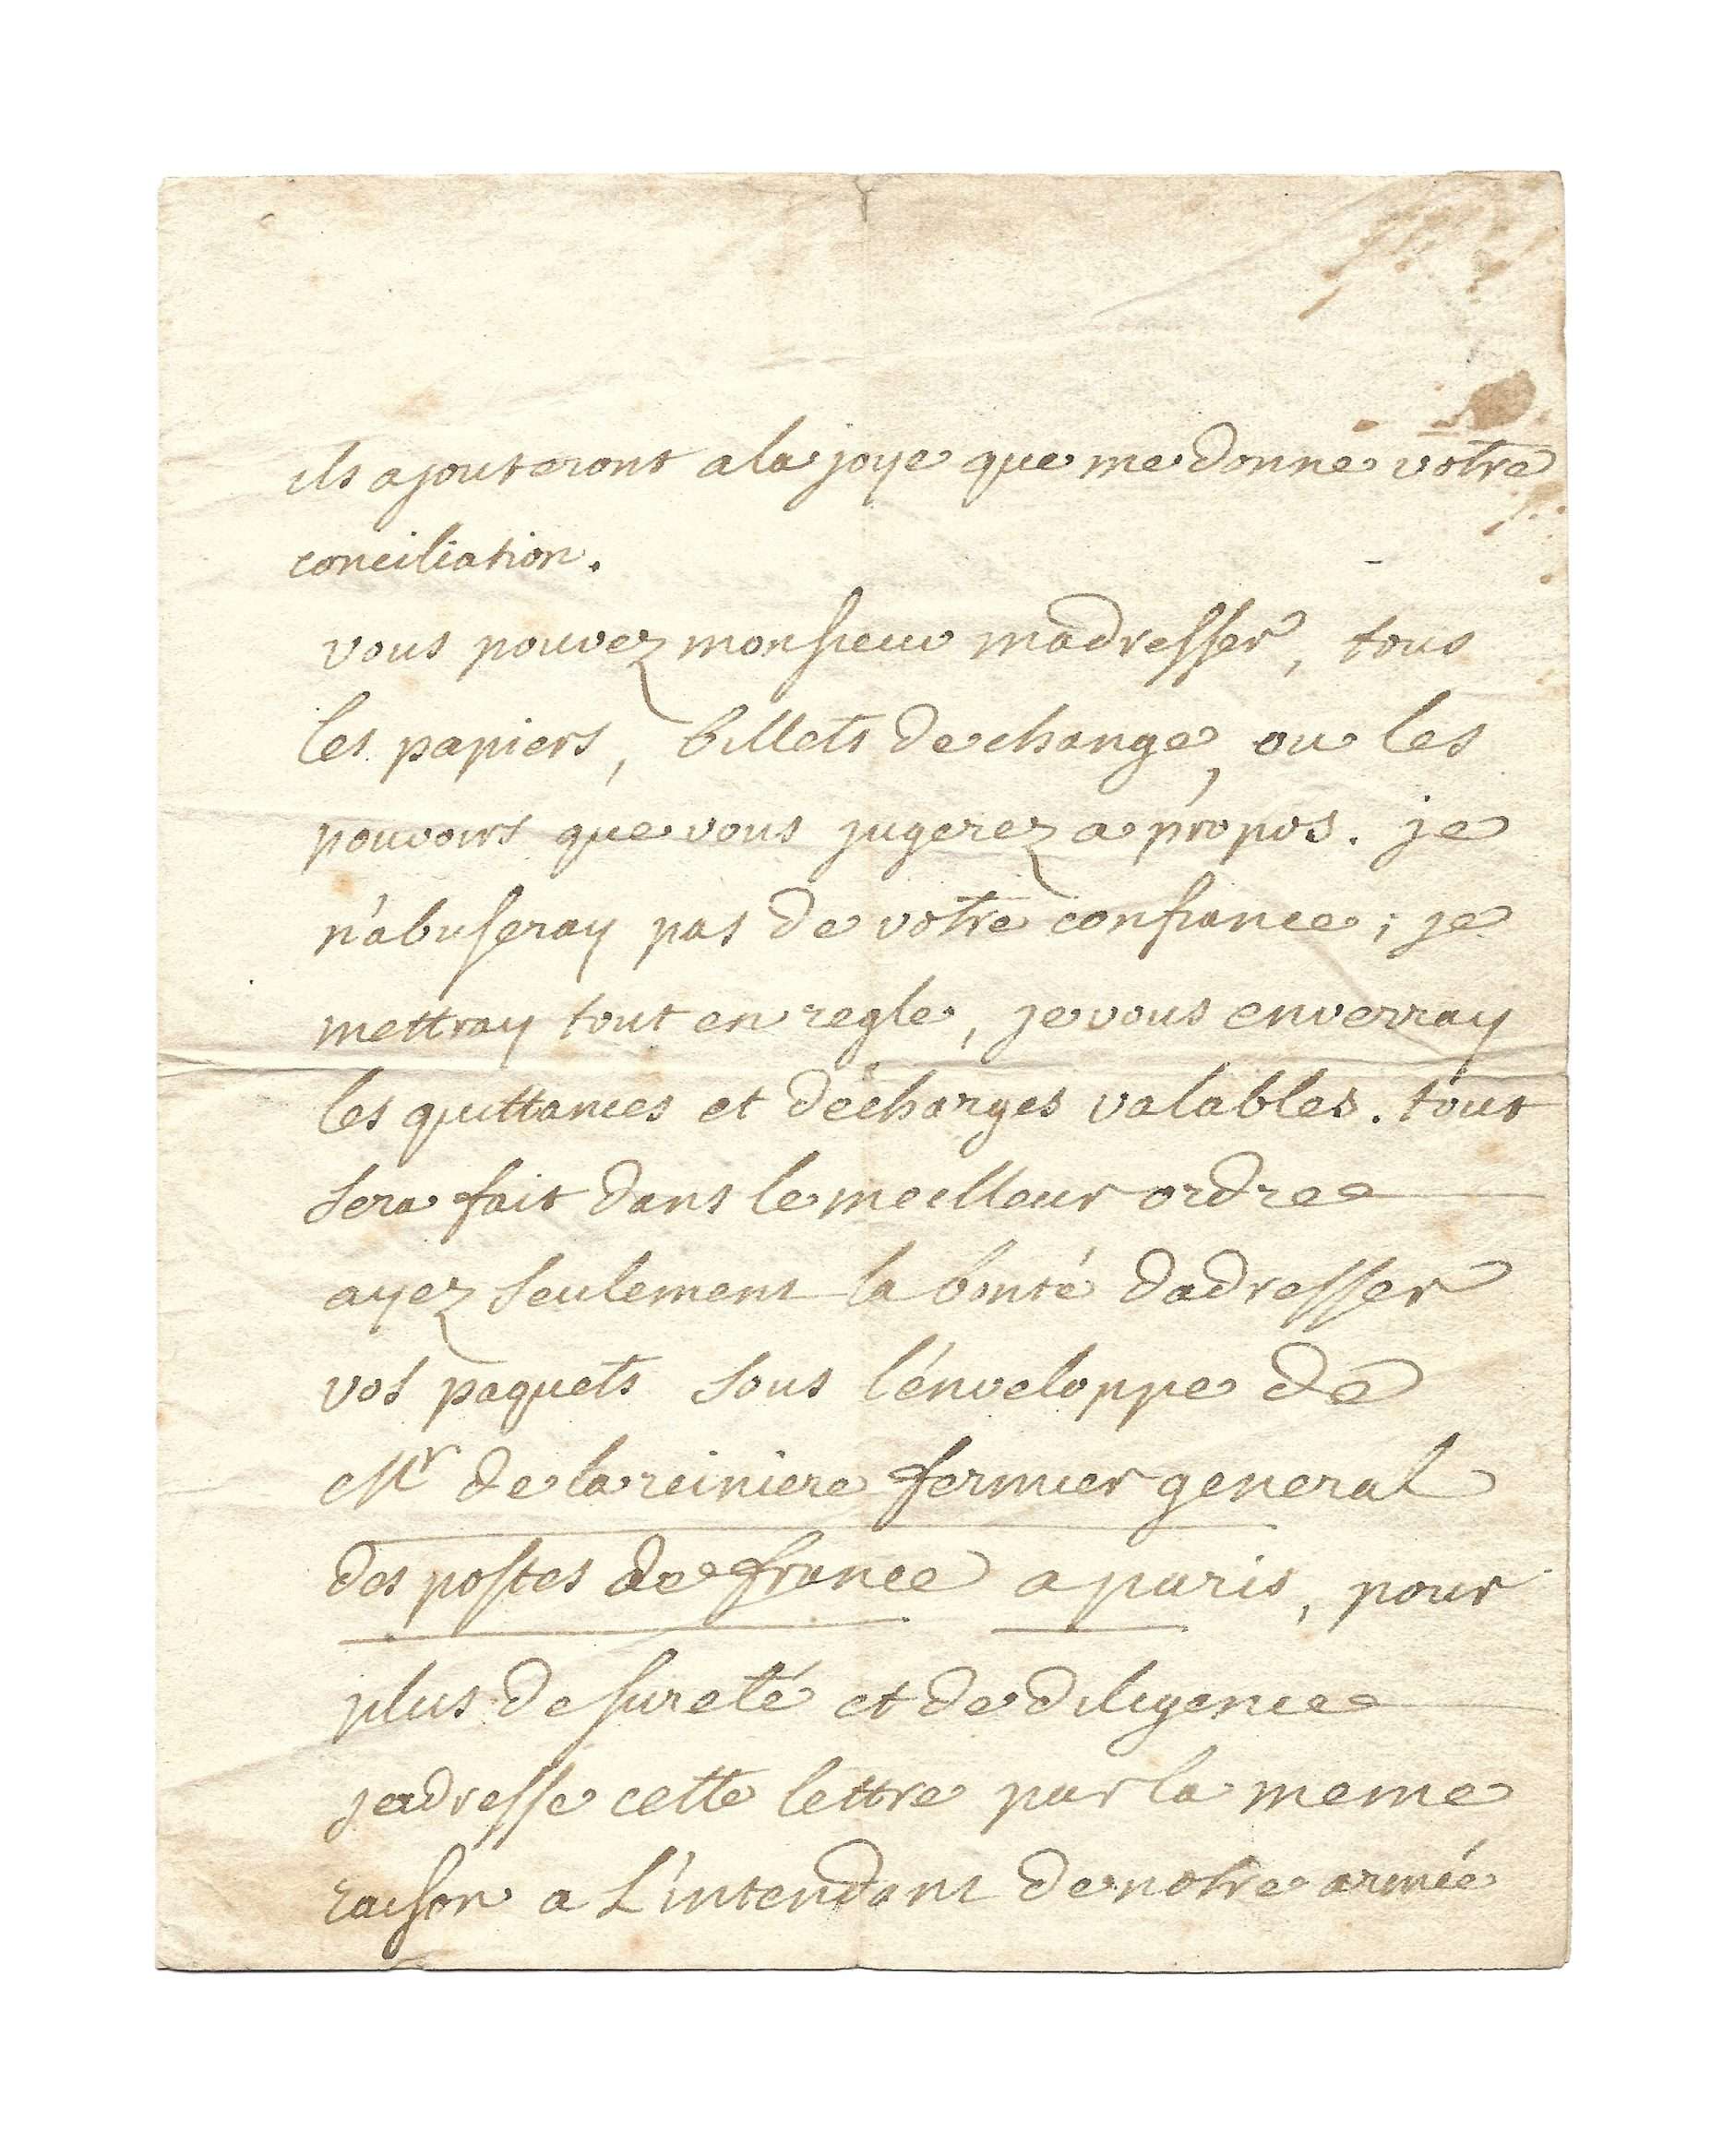 ils ajouteront a la joye que me donne votre
conciliation.
vous pouvez monsieur madresser, tous
les papiers, billets de change, ou les
pouvoirs que vous jugerez a propos. je
n'abuseray pas de votre confiance ; je
mettray tout en regle, je vous enverray
les quittances et décharges valables. tout
sera fait dans le meilleur ordre
ayez seulement la bonté dadresser
vos paquets sous l'énveloppe de
Mr de la reiniere fermier general
des postes de france a paris, pour
plus de sureté et de diligence
jadresse cette lettre par la meme
raison a L'intendant de notre armée